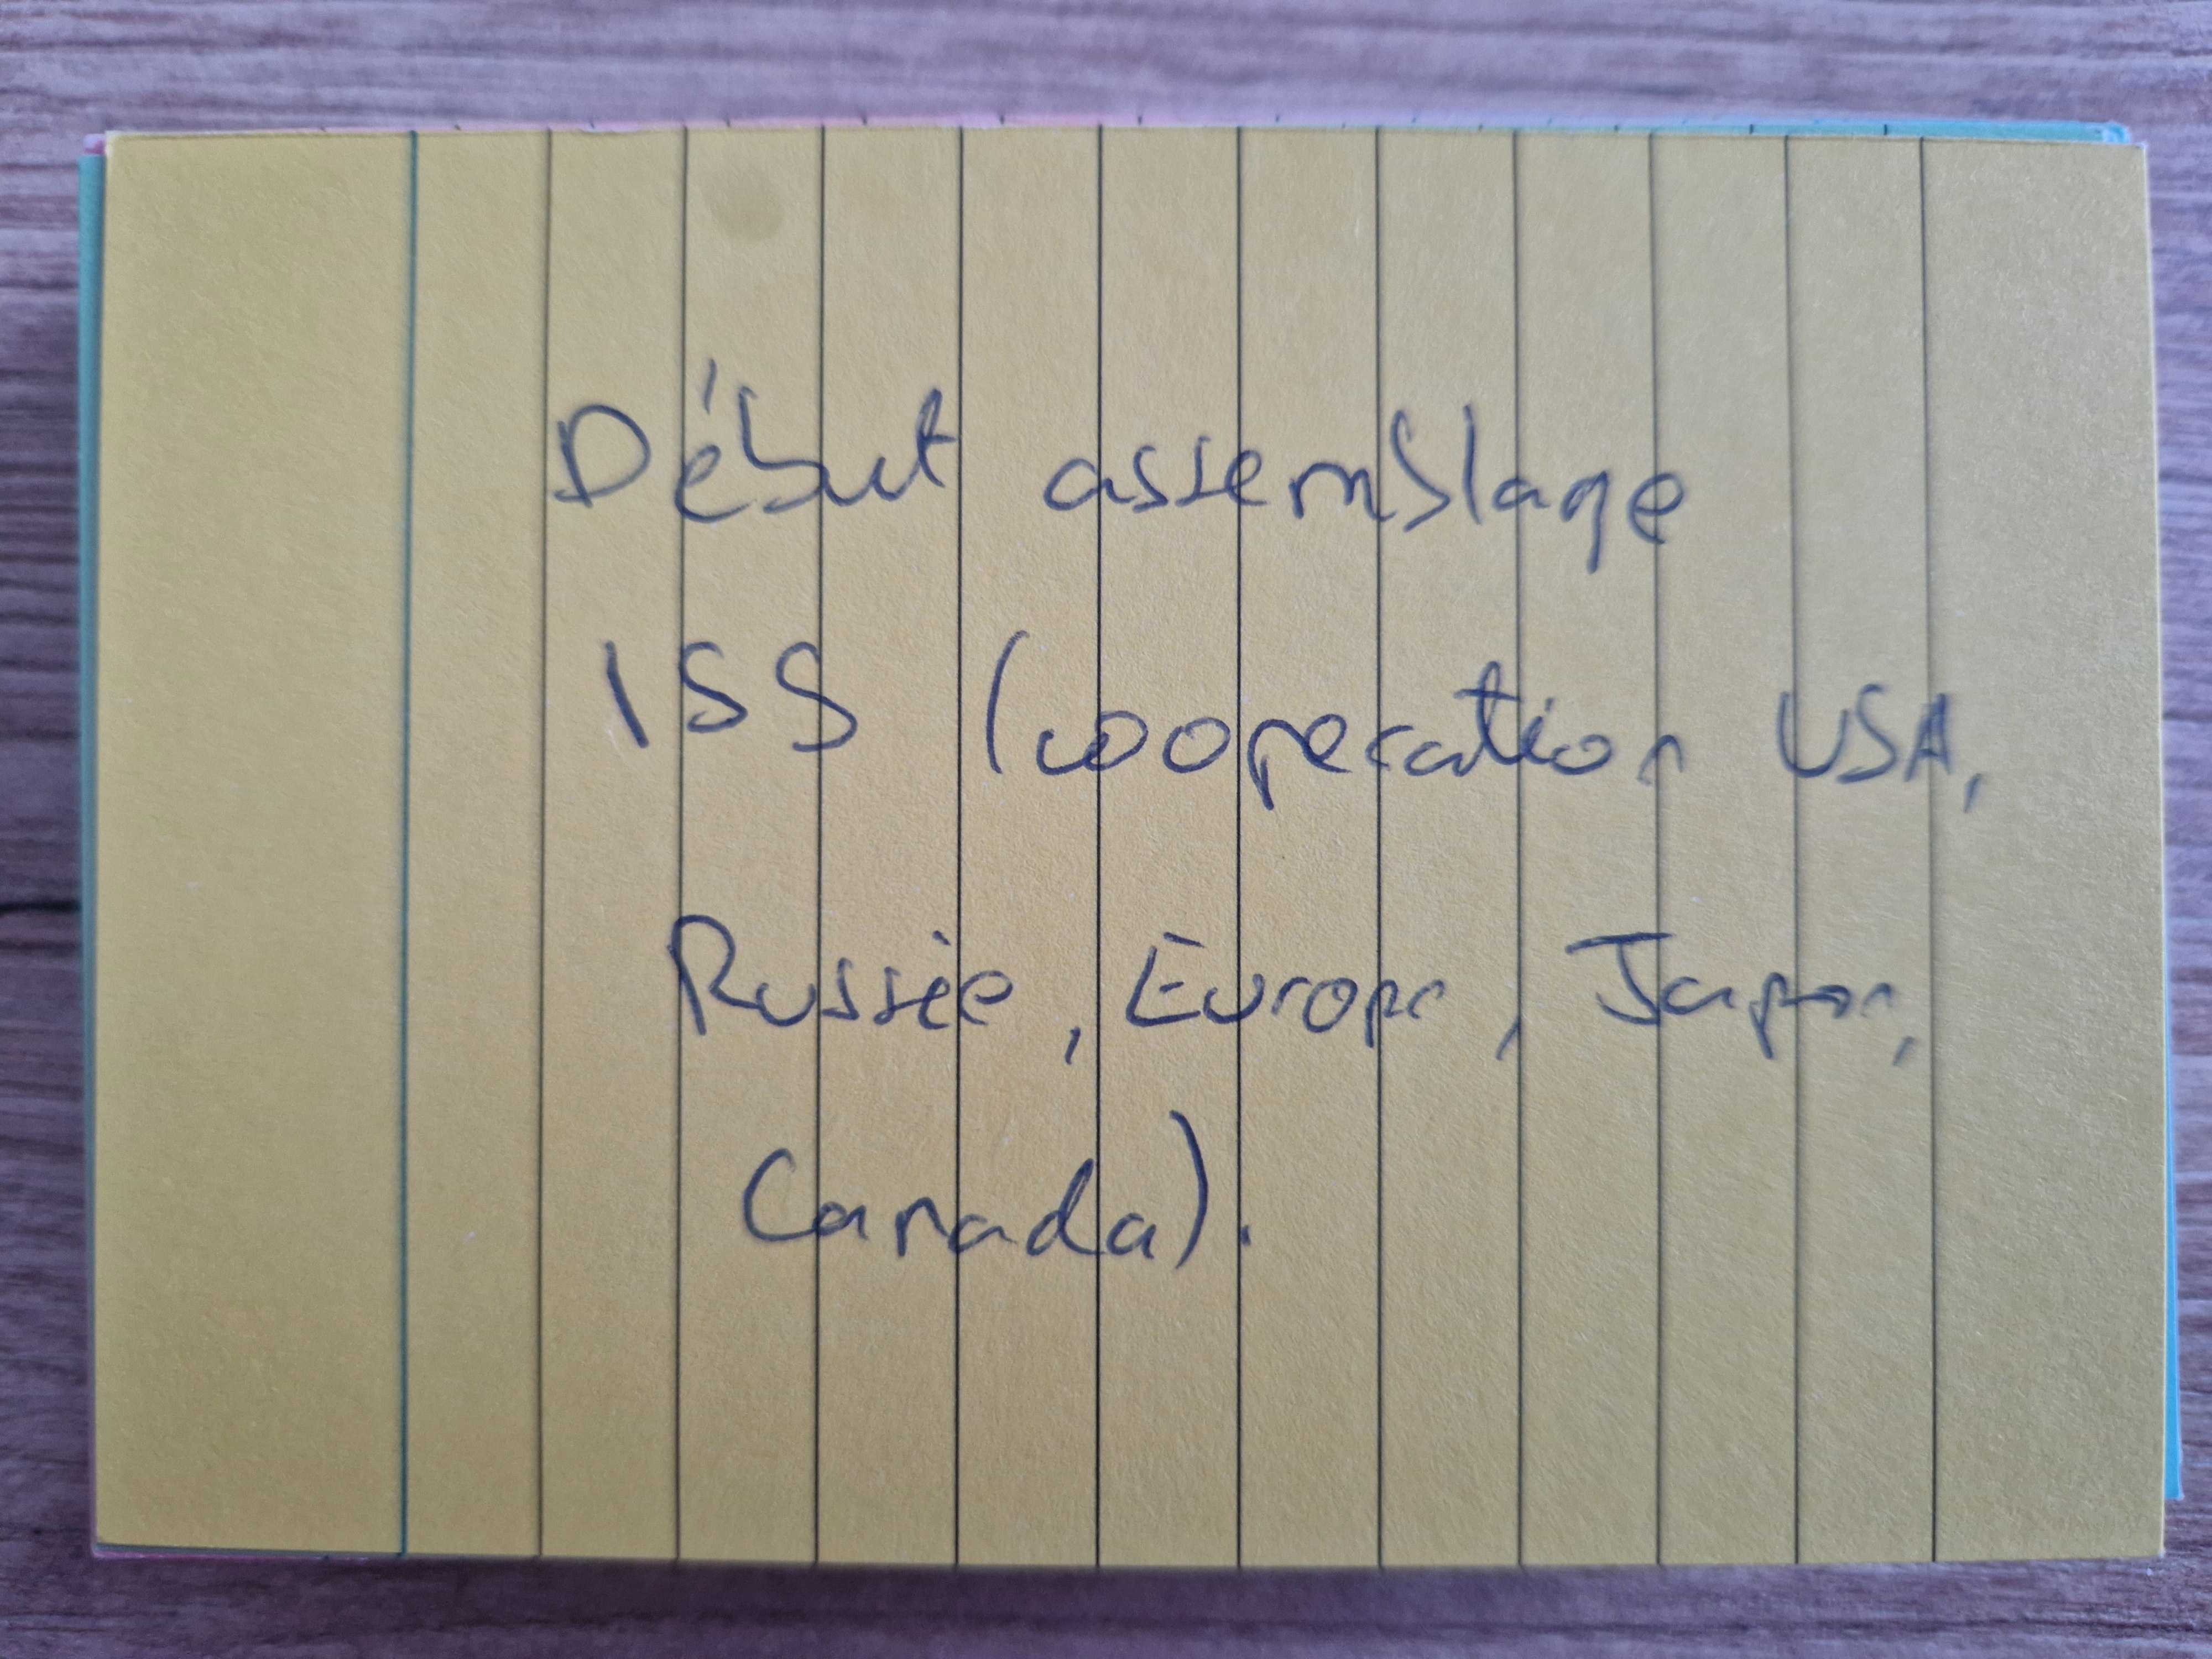 Début assemblage
ISS (cooperation USA,
Russie, Europe, Japon,
Canada).